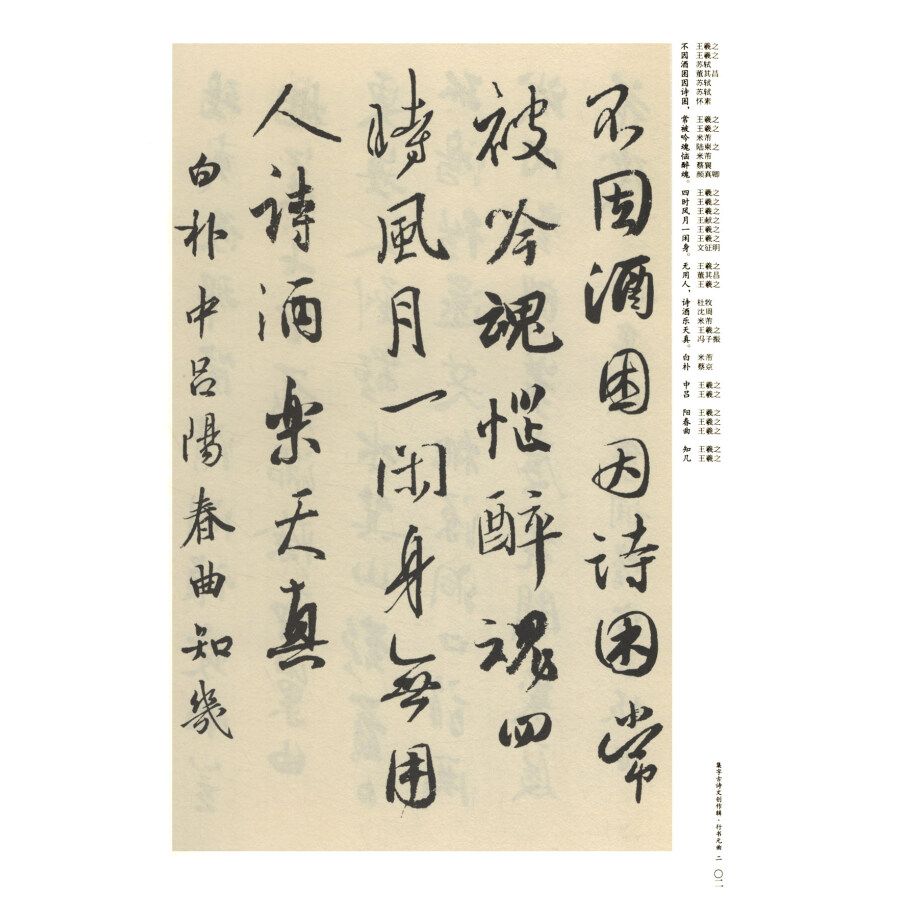 不因酒困因詩困常
被吟魂惱醉魂四
時風月一閑身無用
人詩酒樂天真
白朴中吕陽春曲知幾
不因酒困因诗困，常被吟魂恼醉魂。四时风月一闲身。无用人，诗酒乐天真。白朴 中吕 阳春曲 知几
王羲之
王羲之
苏轼
董其昌
苏轼
苏轼
怀素
王羲之
王羲之
米芾
陆柬之
米芾
蔡襄
颜真卿
王羲之
王羲之
王羲之
王献之
王羲之
王羲之
文征明
王羲之
董其昌
王羲之
杜牧
沈周
米芾
王羲之
冯子振
米芾
蔡京
王羲之
王羲之
王羲之
王羲之
王羲之
王羲之
王羲之
集字古诗文创作辑·行书元曲 二